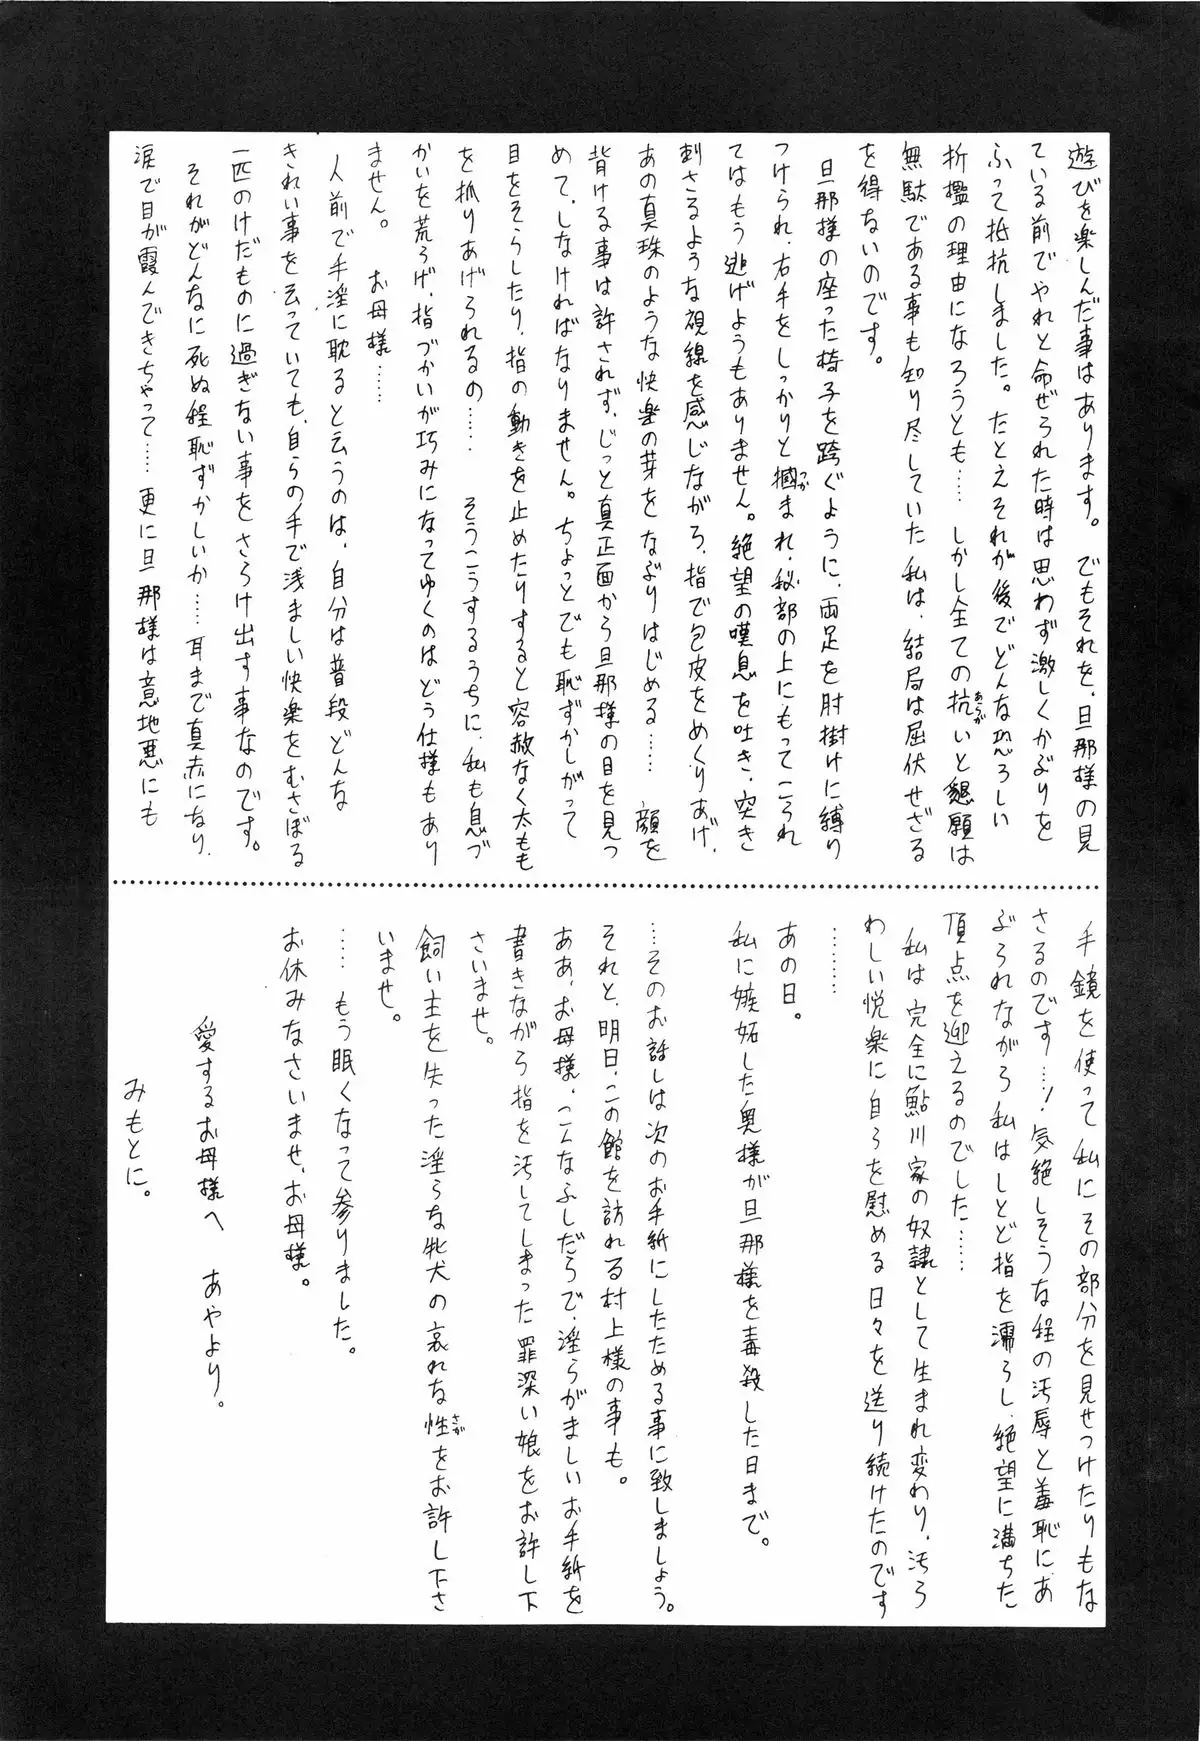 遊びを楽しんだ事はあります。 でもそれを、旦那様の見
ている前でやれと命ぜられた時は思わず激しくかぶりを
ふって抵抗しました。たとえそれが後でどんな恐ろしい
折檻の理由になろうとも…… しかし全ての抗いと懇願は
無駄である事も知り尽していた私は、結局は屈伏せざる
を得ないのです。
旦那様の座った椅子を跨ぐように、両足を肘掛けに縛り
つけられ、右手をしっかりと摑まれ、秘部の上にもってこられ
てはもう逃げようもありません。絶望の嘆息を吐き、突き
刺さるような視線を感じながら、指で包皮をめくりあげ、
あの真珠のような快楽の芽をなぶりはじめる…… 顔を
背ける事は許されず、じっと真正面から旦那様の目を見つ
めて、しなければなりません。ちょっとでも恥ずかしがって
目をそらしたり、指の動きを止めたりすると容赦なく太もも
を抓りあげられるの…… そうこうするうちに、私も息づ
かいを荒らげ、指づかいが巧みになってゆくのはどう仕様もあり
ません。 お母様……
人前で手淫に耽ると云うのは、自分は普段どんな
きれい事を云っていても、自らの手で浅ましい快楽をむさぼる
一匹のけだものに過ぎない事をさらけ出す事なのです。
それがどんなに死ぬ程恥ずかしいか…… 耳まで真赤になり、
涙で目が霞んできちゃって…… 更に旦那様は意地悪にも
手鏡を使って私にその部分を見せつけたりもな
さるのです…! 気絶しそうな程の汚辱と羞恥にあ
ぶられながら私はしとど指を濡らし、絶望に満ちた
頂点を迎えるのでした……
私は完全に鮎川家の奴隷として生まれ変わり、汚ら
わしい悦楽に自らを慰める日々を送り続けたのです
………
あの日。
私に嫉妬した奥様が旦那様を毒殺した日まで。
…そのお話しは次のお手紙にしたためる事に致しましょう。
それと、明日、この館を訪れる村上様の事も。
ああ、お母様、こんなふしだらで、淫らがましいお手紙を
書きながら指を汚してしまった罪深い娘をお許し下
さいませ。
飼い主を失った淫らな牝犬の哀れな性をお許し下さ
いませ。
…… もう眠くなって参りました。
お休みなさいませ、お母様。
愛するお母様へ あやより。
みもとに。